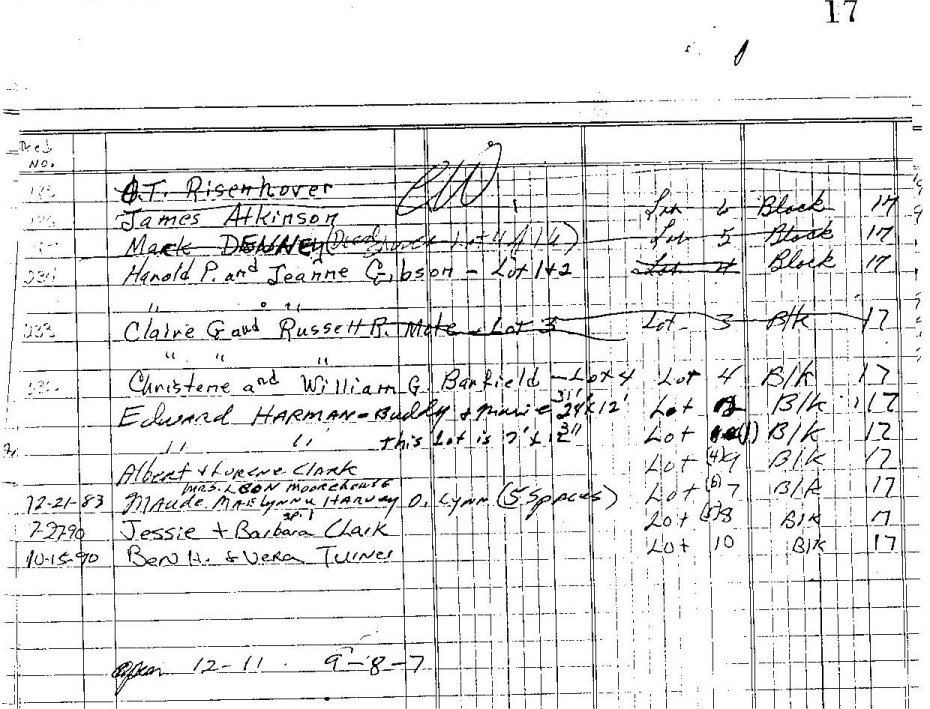 17
Deed
No.
O.T. Risenhover Lot 6 Block 17
James Atkinson Lot 5 Block 17
Mark DENNEY (Deed Lot 4 Block 17
234 Harold P. and Jeanne Gibson - Lot 1+2
" " "
233 Claire G and Russell R. Mote - Lot 3 Lot 3 Blk 17
" " "
Christene and William G. Barfield - Lot 4 Lot 4 Blk 17
Edward HARMAN - Buddy + Lot 2 Blk 17
" " this Lot is Lot (1) Blk 17
Albert + Lurene Clark Lot (4) 9 Blk 17
Mrs. LEON Moorehouse
12-21-83 MAUDE, MARLYNN + HARVEY O. LYNN (5 Spaces) Lot (6) 7 Blk 17
sp. 1
7-27-90 Jessie + Barbara Clark Lot (5) 8 Blk 17
10-15-90 Ben H. & Vera Turner Lot 10 Blk 17
open 12-11. 9-8-7